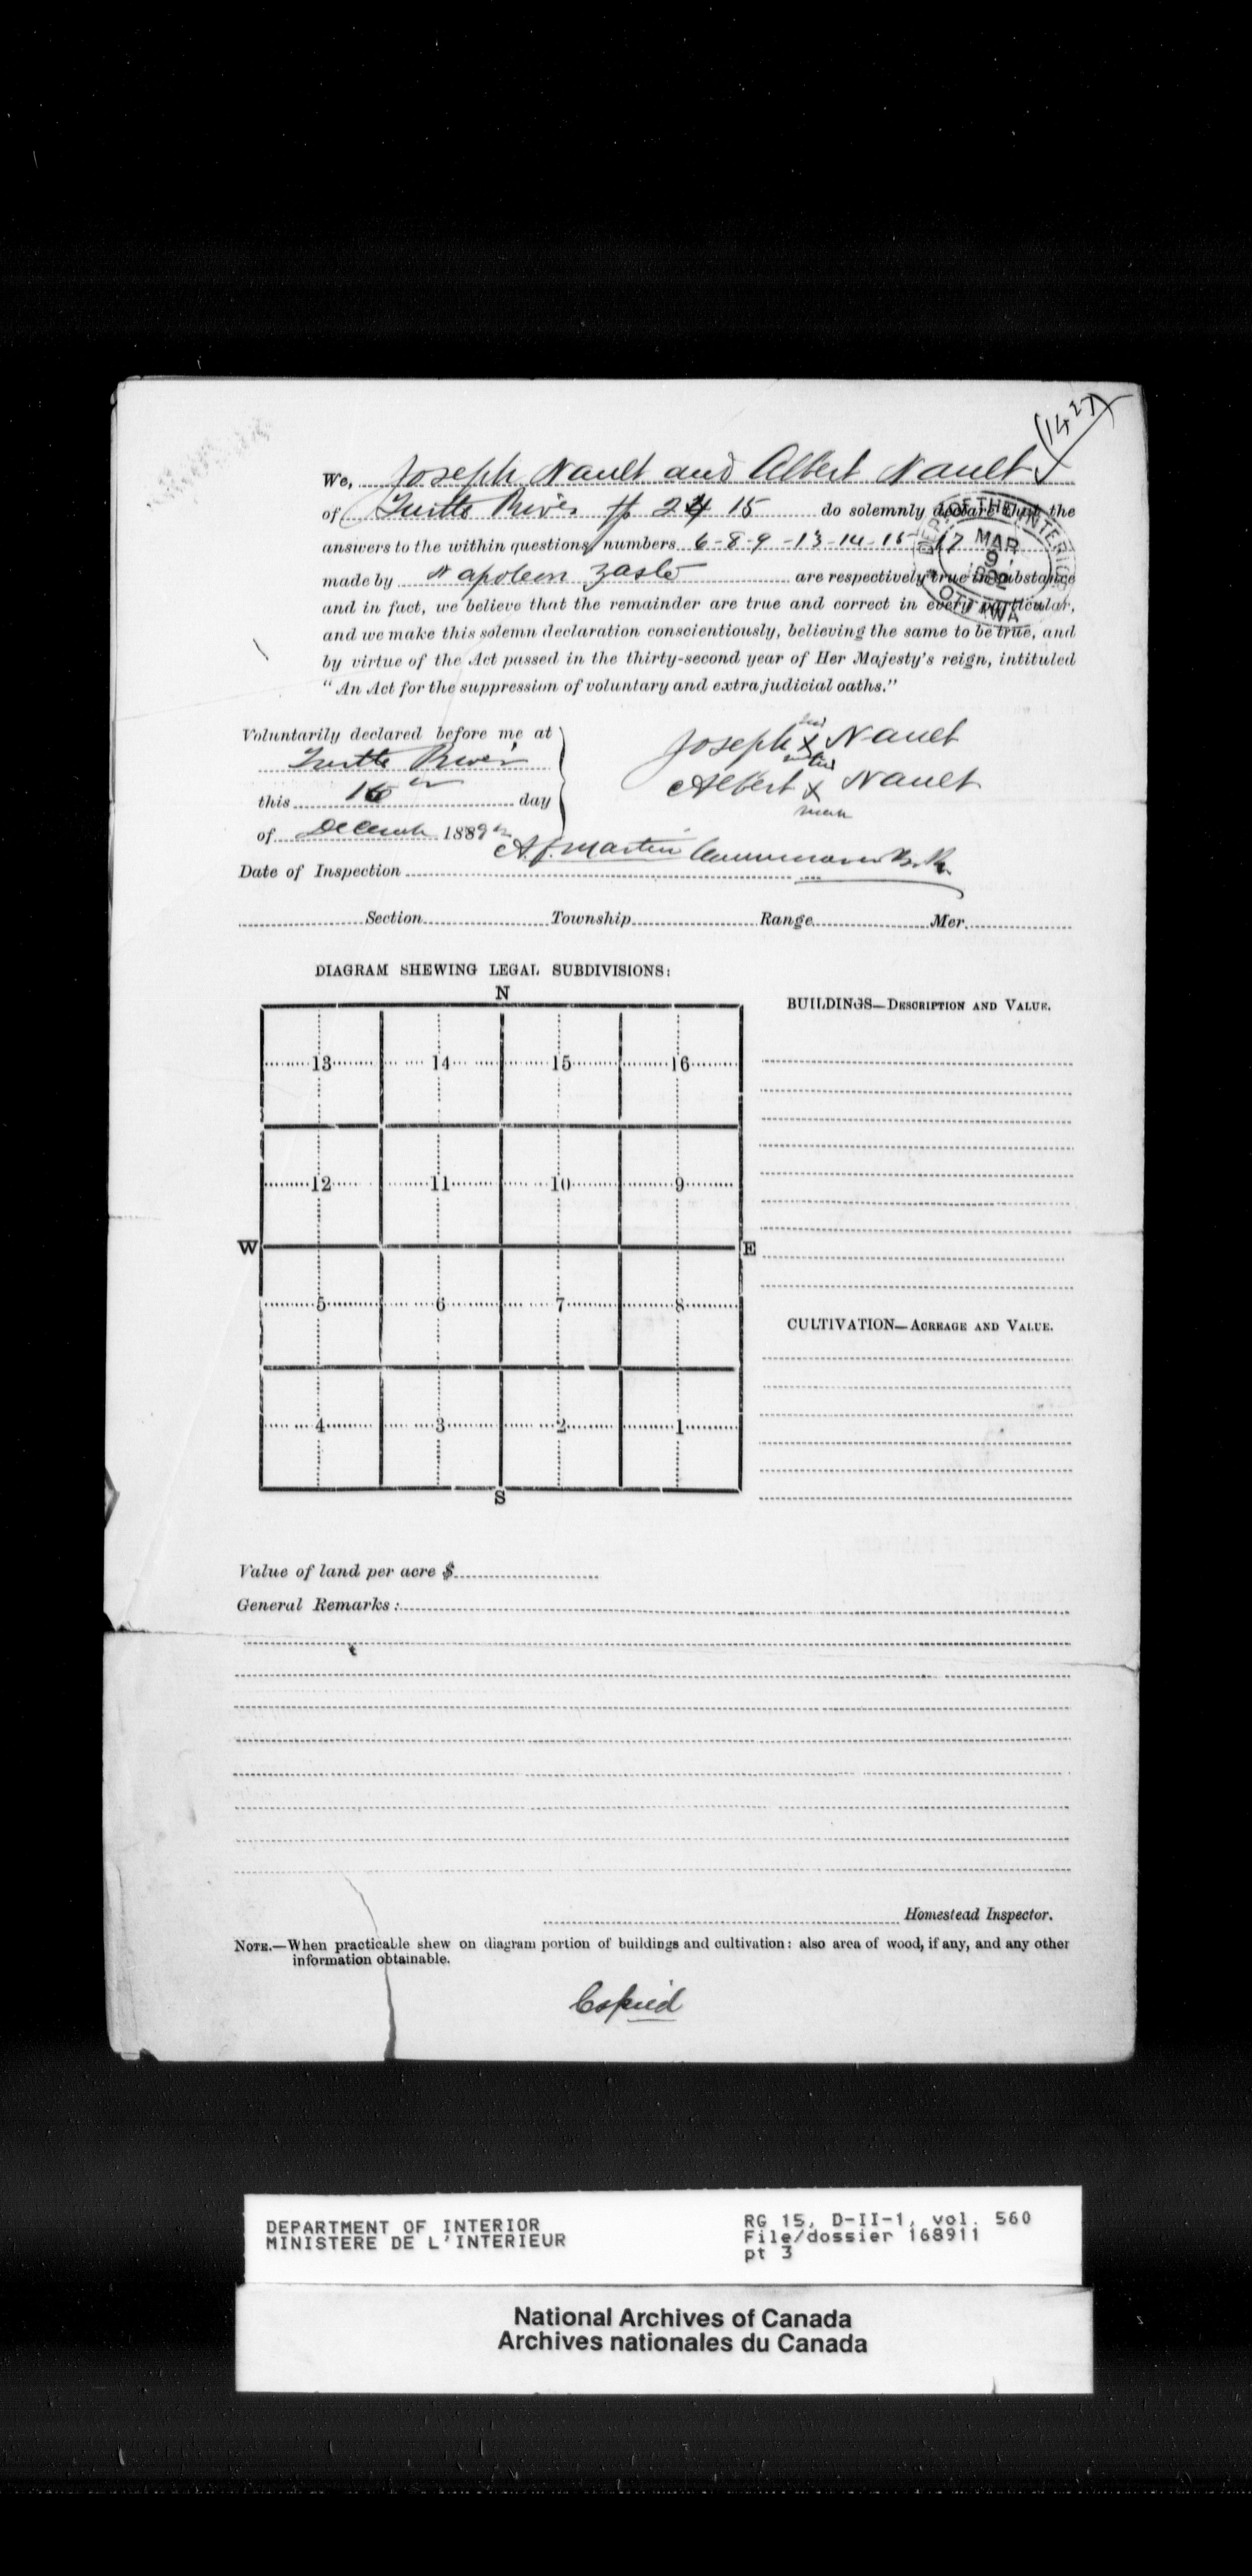 (1427)
We, Joseph Nault and Albert Nault
of Turtle River Tp 24 15 do solemnly declare that the
answers to the within questions, numbers 6-8-9-13-14-15-17
made by Napoleon Zaste are respectively true in substance
and in fact, we believe that the remainder are true and correct in every particular,
and we make this solemn declaration conscientiously, believing the same to be true, and
by virtue of the Act passed in the thirty-second year of Her Majesty's reign, intituled
"An Act for the suppression of voluntary and extra judicial oaths."
DEP. OF THE INTERIOR
MAR
9
OTTAWA
Voluntarily declared before me at
Turtle River
this 16th day
of December 1889
his
Joseph X Nault
his
Albert X Nault
mark
A. J. Martin
Date of Inspection
Section Township Range Mer.
DIAGRAM SHEWING LEGAL SUBDIVISIONS:
N
13 14 15 16
12 11 10 9
W E
5 6 7 8
4 3 2 1
S
BUILDINGS—DESCRIPTION AND VALUE.
CULTIVATION—ACREAGE AND VALUE.
Value of land per acre $
General Remarks:
Homestead Inspector.
NOTE.—When practicable shew on diagram portion of buildings and cultivation: also area of wood, if any, and any other
information obtainable.
Copied
DEPARTMENT OF INTERIOR
MINISTERE DE L'INTERIEUR
RG 15, D-II-1, vol. 560
File/dossier 168911
pt 3
National Archives of Canada
Archives nationales du Canada